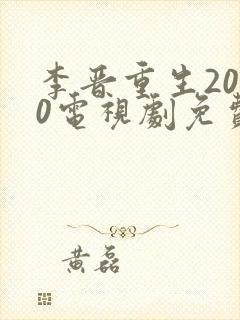 李晋重生20
0電視劇免費
黄磊